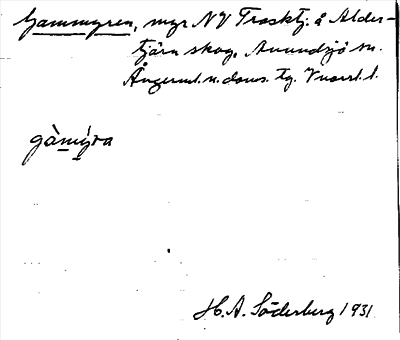 Gammyren, myr NV Trosktj. å Alder-
tjärn skog, Anundsjö sn.
Ångerml. n. doms. tg. V norrl. l.
gàmýra
H. A. Söderberg 1931